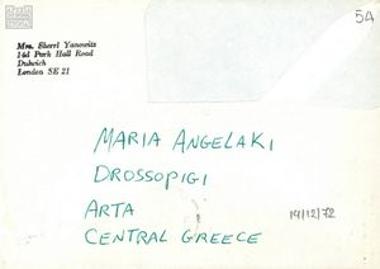 54
Mrs. Sherri Yanowitz
14d Park Hall Road
Dulwich
London SE 21
MARIA ANGELAKI
DROSSOPIGI
ARTA
19/12/72
CENTRAL GREECE